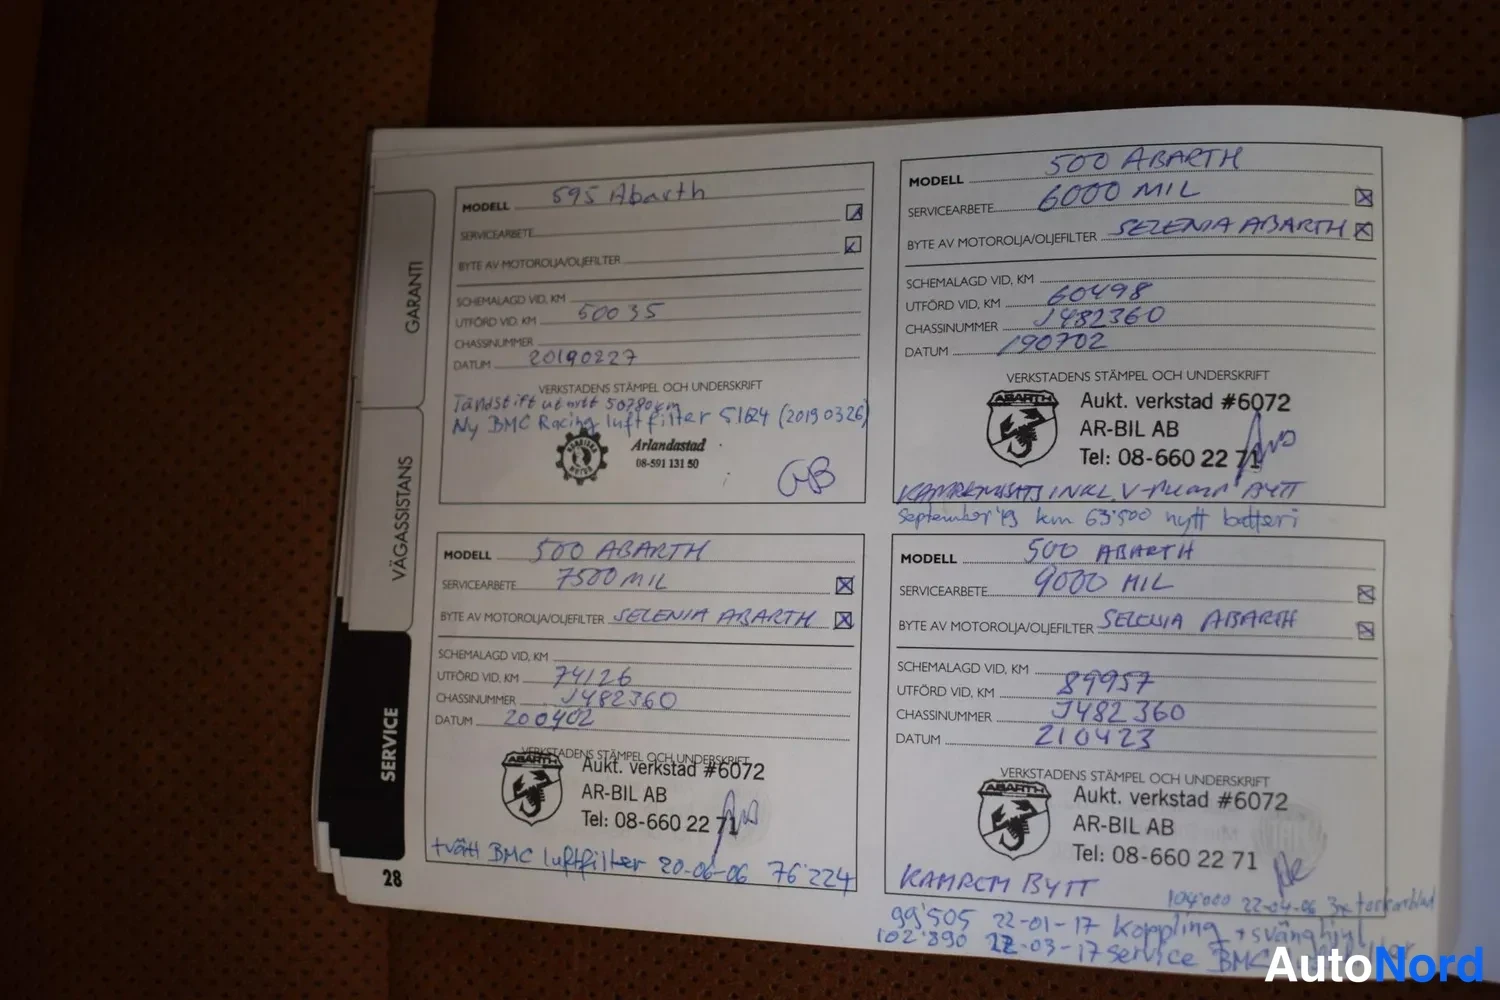 GARANTI
VÄGASSISTANS
SERVICE
MODELL 595 Abarth
SERVICEARBETE
BYTE AV MOTOROLJA/OLJEFILTER
SCHEMALAGD VID, KM
UTFÖRD VID, KM 50035
CHASSINUMMER
DATUM 20190227
VERKSTADENS STÄMPEL OCH UNDERSKRIFT
Tändstift utbytt 50780km
Ny BMC Racing luftfilter 51124 (20190326)
Arlandastad
08-591 131 50
GB
MODELL 500 ABARTH
SERVICEARBETE 6000 MIL
BYTE AV MOTOROLJA/OLJEFILTER SELENIA ABARTH
SCHEMALAGD VID, KM
UTFÖRD VID, KM 60498
CHASSINUMMER J482360
DATUM 190702
VERKSTADENS STÄMPEL OCH UNDERSKRIFT
ABARTH
Aukt. verkstad #6072
AR-BIL AB
Tel: 08-660 22 71
INKL V-PUMP BYTT
September '19 km 63'500 nytt batteri
MODELL 500 ABARTH
SERVICEARBETE 7500 MIL
BYTE AV MOTOROLJA/OLJEFILTER SELENIA ABARTH
SCHEMALAGD VID, KM
UTFÖRD VID, KM 74126
CHASSINUMMER J482360
DATUM 200402
VERKSTADENS STÄMPEL OCH UNDERSKRIFT
ABARTH
Aukt. verkstad #6072
AR-BIL AB
Tel: 08-660 22 71
tvätt BMC luftfilter 20-06-06 76'224
28
MODELL 500 ABARTH
SERVICEARBETE 9000 MIL
BYTE AV MOTOROLJA/OLJEFILTER SELENIA ABARTH
SCHEMALAGD VID, KM
UTFÖRD VID, KM 89957
CHASSINUMMER J482360
DATUM 210423
VERKSTADENS STÄMPEL OCH UNDERSKRIFT
ABARTH
Aukt. verkstad #6072
AR-BIL AB
Tel: 08-660 22 71
KAMREM BYTT
104'000 22-04-06 3x torkarblad
99'505 22-01-17 Koppling + svänghjul
102'890 22-03-17 Service BMC
AutoNord